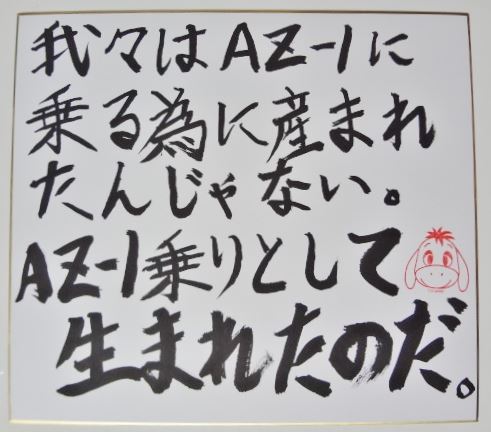 我々はAZ-1に
乗る為に産まれ
たんじゃない。
AZ-1乗りとして
生まれたのだ。